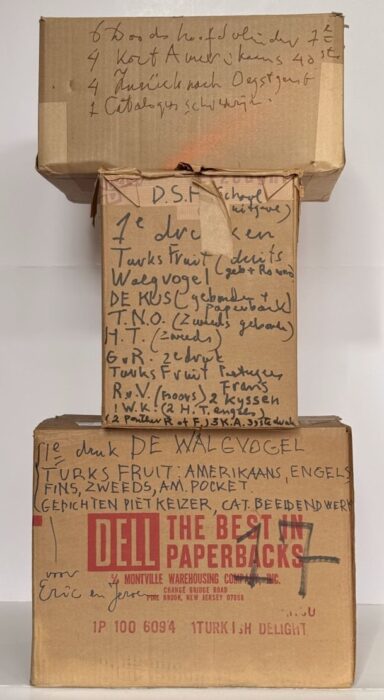 6 Doodshoofdvlinder 1e
4 Kort Amerikaans 40ste
4 Zurück nach Oegstgeest
1 Catalogus
D.S.F. (School uitgave)
1e drukken
Turks Fruit (duits
Walgvogel (geb +
DE KUS (gebonden + Paperback)
T.N.O. (Zweeds gebonden)
H.T. (Zweeds)
G.v.R. 2e druk
Turks Fruit Portugees
Frans
R.v.V. (noors) 2 Kyssen
! W.K. (2 H.T. engels)
(2 Panther R of F.) 3 K.A. 3iste druk
1e druk DE WALGVOGEL
TURKS FRUIT: AMERIKAANS, ENGELS
FINS, ZWEEDS, AM. POCKET
GEDICHTEN PIET KEIZER, CAT. BEELDEND WERK
DELL THE BEST IN
PAPERBACKS
17
% MONTVILLE WAREHOUSING COMPANY, INC.
CHANGE BRIDGE ROAD
PINE BROOK, NEW JERSEY 07058
voor
Eric en Jeroen
1P 100 6094 1TURKISH DELIGHT